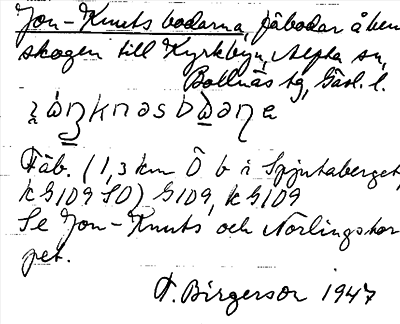 Jon-Knuts bodarna, fäbodar å ben
skogen till Kyrkbyn, Alfta sn,
Bollnäs tg, Gävl. l.
Fäb. (1,3 km Ö b i Spjutaberget,
kG1D9 SO) G1D9, kG1D9
Se Jon-Knuts och Norlingstor
pet.
F. Birgerson 1947